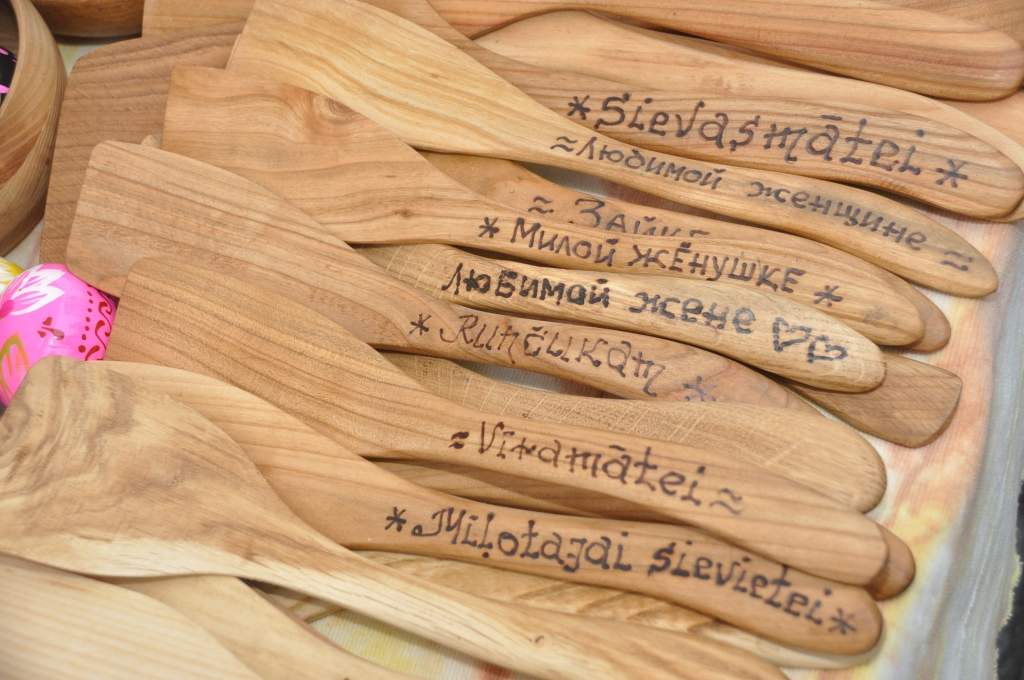 *Sievasmātei*
≈Любимой женщине≈
≈ Зайке
*Милой жёнушке*
Любимой жене ♡♡
*Runčukam*
≈Vīramātei≈
*Miļotajai sievietei*